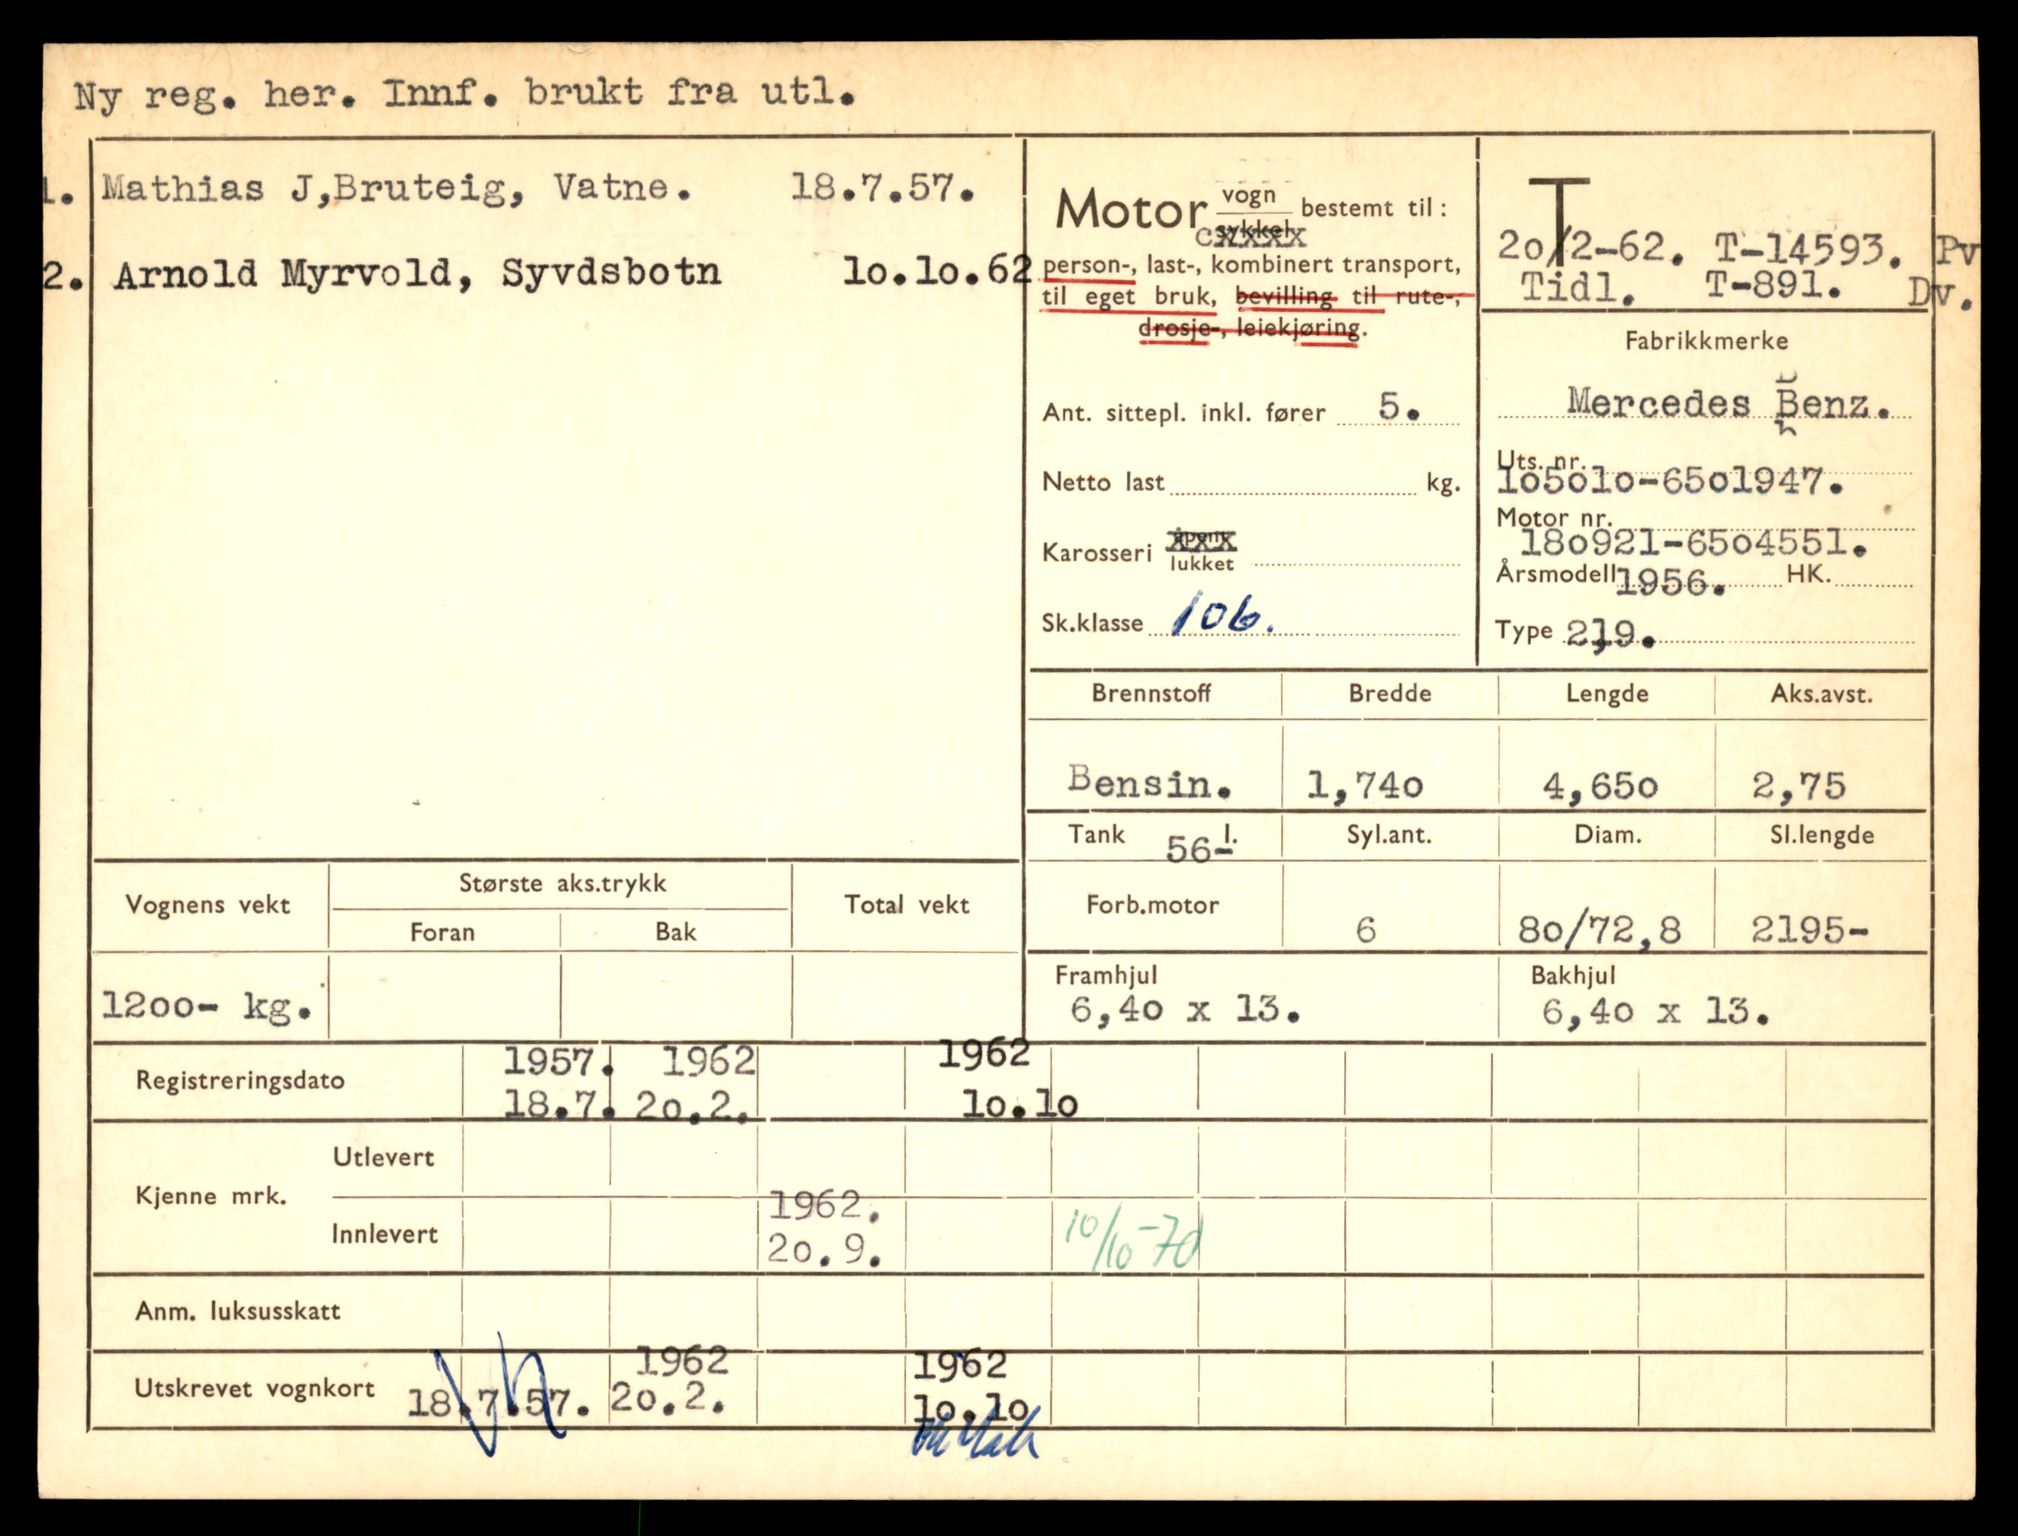 Ny reg. her. Innf. brukt fra utl.
1. Mathias J,Bruteig, Vatne. 18.7.57.
2. Arnold Myrvold, Syvdsbotn 10.10.62
Motor vogn sykkel bestemt til:
person-, last-, kombinert transport,
til eget bruk, bevilling til rute-,
drosje-, leiekjøring.
Ant. sittepl. inkl. fører 5.
Netto last kg.
Karosseri åpent lukket
Sk.klasse 106.
T
20/2-62. T-14593. Pv
Tidl. T-891. Dv.
Fabrikkmerke
Mercedes Benz.
Uts. nr.
105010-6501947.
Motor nr.
180921-6504551.
Årsmodell 1956. HK.
Type 219.
Brennstoff Bredde Lengde Aks.avst.
Bensin. 1,740 4,650 2,75
Tank 56- l. Syl.ant. Diam. Sl.lengde
Forb.motor 6 80/72,8 2195-
Framhjul Bakhjul
6,40 x 13. 6,40 x 13.
Vognens vekt Største aks.trykk Total vekt
Foran Bak
1200- kg.
Registreringsdato
1957. 1962 1962
18.7. 20.2. 10.10
Kjenne mrk.
Utlevert
Innlevert
1962.
20.9. 10/10-70
Anm. luksusskatt
Utskrevet vognkort
1962 1962
18.7.57. 20.2. 10.10